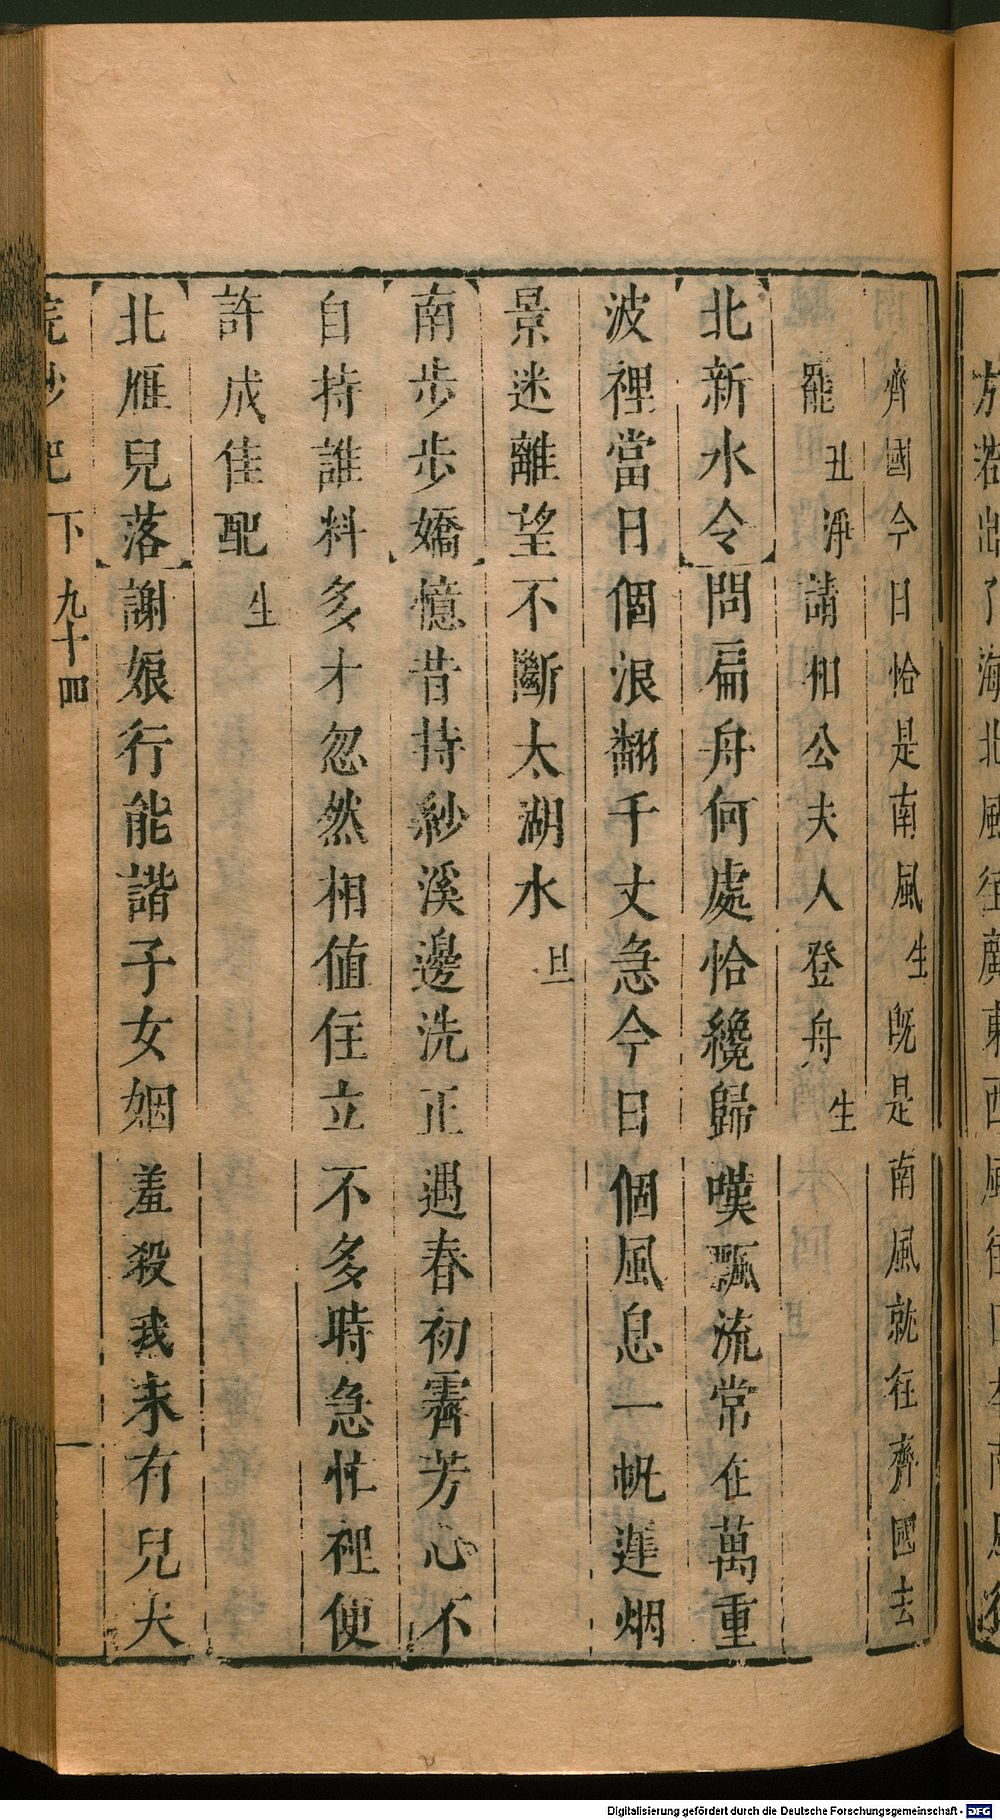 齊國今日恰是南風生既是南風就往齊國去
罷丑淨請相公夫人登舟生
【北新水令】問扁舟何處恰纔歸嘆飄流常在萬重
波裡當日個浪翻千丈急今日個風息一帆遲烟
景迷離望不斷太湖水旦
【南步步嬌】憶昔持紗溪邊洗正遇春初霽芳心不
自持誰料多才忽然相值住立不多時急忙裡便
許成佳配生
【北雁兒落】謝娘行能諧子女姻羞殺我未有兒夫
浣紗記下 九十四
Digitalisierung gefördert durch die Deutsche Forschungsgemeinschaft - DFG